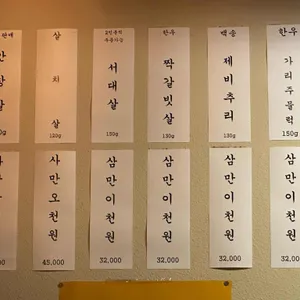 안창살
150g
살치살
120g
서대살
150g
한우
짝갈빗살
150g
제비추리
150g
한우
가리주물럭
150g
사만오천원
45,000
삼만이천원
32,000
삼만이천원
32,000
삼만이천원
32,000
삼만이천원
32,000